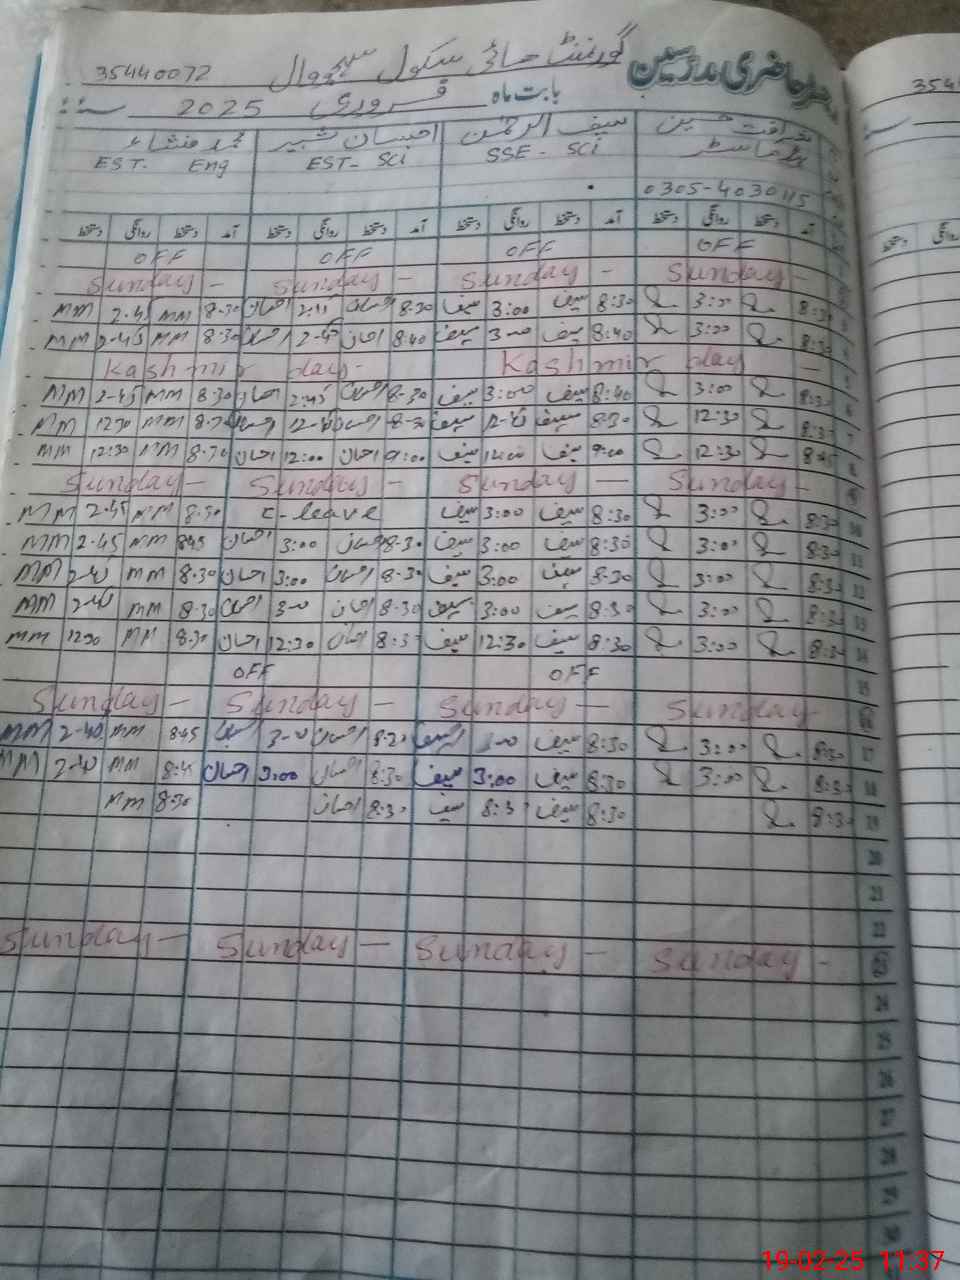 رجسٹر حاضری مدرسین گورنمنٹ ہائی سکول 35440072
بابت ماہ فروری 2025 سنہ
شرافت حسین سیف الرحمٰن احسان شبیر محمد منشاء
ہیڈ ماسٹر SSE - SCi EST - SCi EST. Eng
0305-4030115
آمد دستخط روانگی دستخط آمد دستخط روانگی دستخط آمد دستخط روانگی دستخط آمد دستخط روانگی دستخط
OFF OFF OFF OFF
Sunday - Sunday - Sunday - Sunday -
8:30 3:00 8:30 سیف 3:00 سیف 8-30 احسان 2:45 احسان 8-30 MM 2-45 MM
8:30 3:00 8:40 سیف 3-00 سیف 8:40 احسان 2-45 احسان 8:30 MM 2-45 MM
Kashmir day - Kashmir day -
6 8:30 3:00 8:40 سیف 3:00 سیف 8-30 احسان 2:45 احسان 8-30 MM 2-45 MM
7 8:30 12:30 8:30 سیف سیف 8-30 احسان احسان 8-30 MM 1230 MM
8 8:45 12:30 9:00 سیف سیف 9:00 احسان 12:00 احسان 8-30 MM 12:30 MM
9 Sunday - Sunday - Sunday - Sunday -
10 8:30 3:00 8:30 سیف 3:00 سیف C-leave 8:30 MM 2-45 MM
11 8:30 3:00 8:30 سیف 3:00 سیف 8-30 احسان 3:00 احسان 845 MM 2-45 MM
12 8:30 3:00 8-30 سیف 3:00 سیف 8-30 احسان 3:00 احسان 8-30 MM 2-40 MM
13 8:30 3:00 8-30 سیف 3:00 سیف 8-30 احسان 3-00 احسان 8-30 MM 2-40 MM
14 8:30 3:00 8:30 سیف 12:30 سیف 8:30 احسان 12:30 احسان 8:30 MM 1230 MM
15 OFF OFF
16 Sunday Sunday - Sunday - Sunday -
17 8:30 3:00 8:30 سیف 3-00 سیف 8:30 احسان 3-00 8:45 MM 2-40 MM
18 8:30 3:00 8:30 سیف 3:00 سیف 8:30 احسان 3:00 احسان 8:45 MM 2-40 MM
19 8:30 8:30 سیف 8:30 سیف 8:30 احسان 8:30 MM
20
21
22
23 Sunday - Sunday - Sunday - Sunday -
24
25
26
27
28
29
30
354
سنہ
روانگی دستخط
19-02-25 11:37